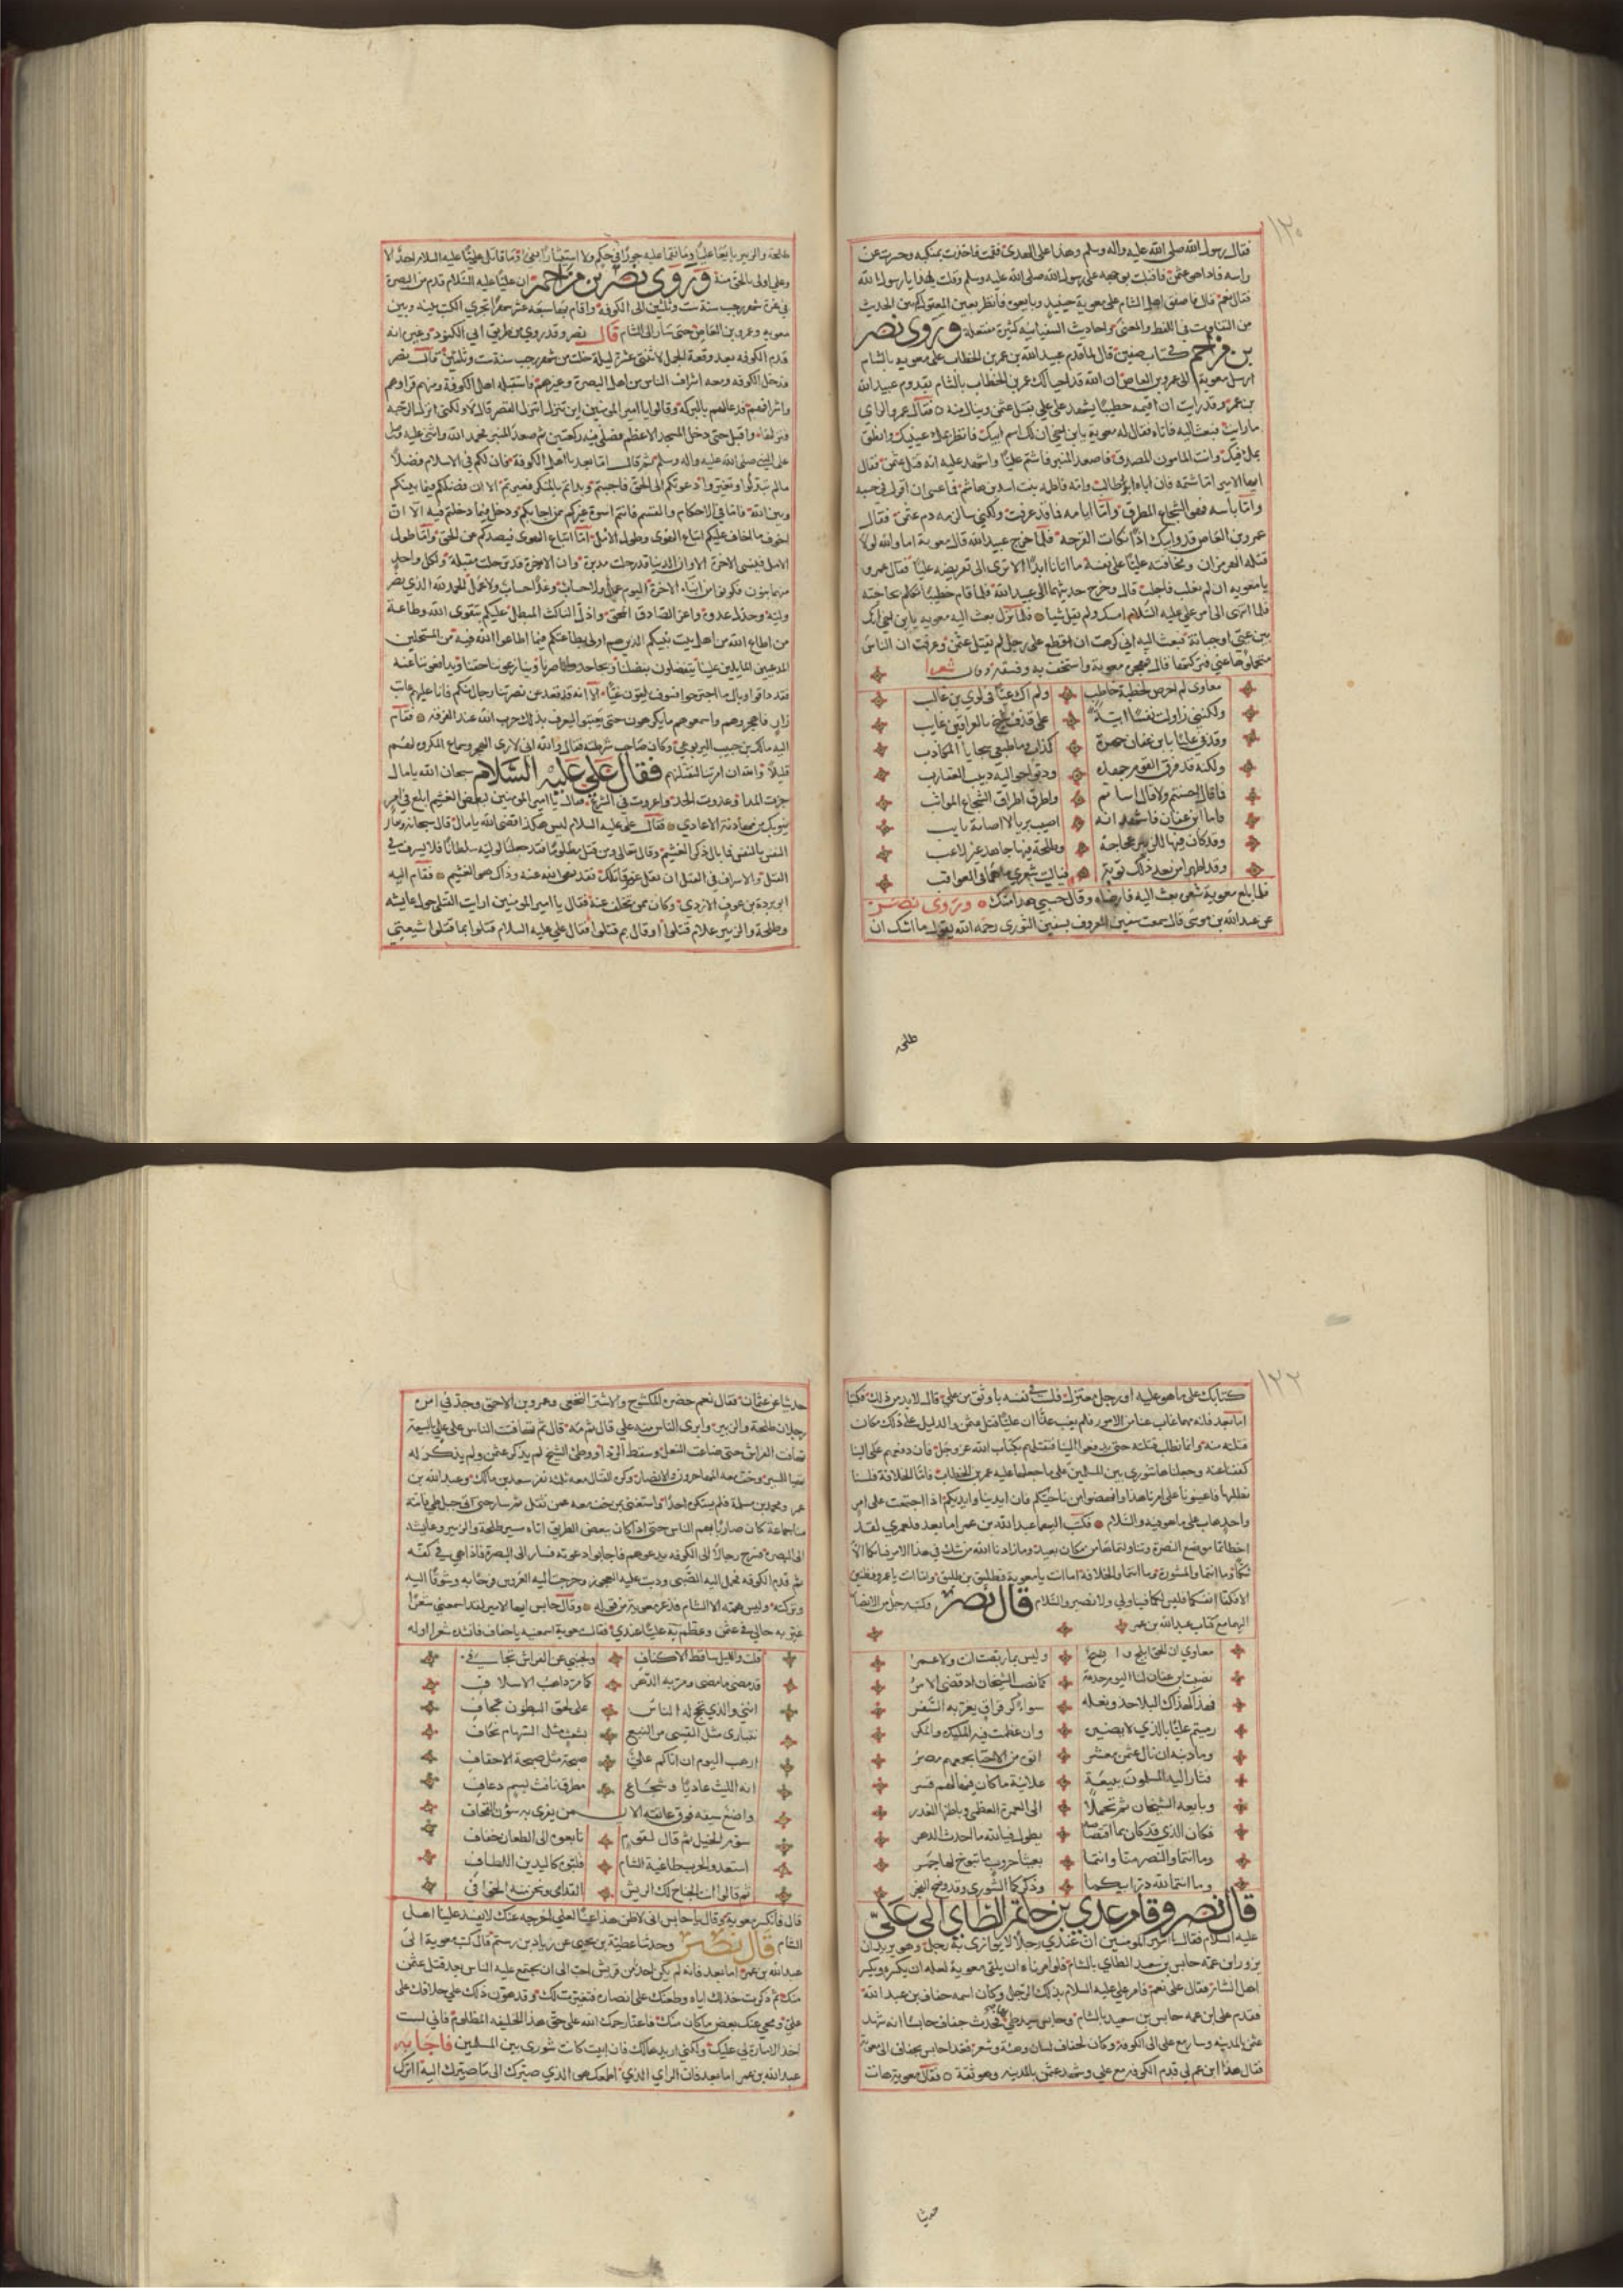 ١٢٠
فقال رسول الله صلى الله عليه واله وسلم وهذا على الهدى فقمت فاخذت بمنكبيه وحسرت عن
راسه فاذا هو عثمن فاقبلت بوجهه على رسول الله صلى الله عليه وسلم وقلت هذا يا رسول الله
فقال نعم قال فاصفق اهل الشام على معوية حينئذ وبايعوه فانظر بعين المعتبر بين الحديث
من التفاوت في اللفظ والمعنى واحاديث السفيانيه كثيرة مفتعلة وروى نصر
بن مزاحم في كتاب صفين قال لما قدم عبيد الله بن عمر بن الخطاب على معويه بالشام
ارسل معوية الى عمرو بن العاص ان الله قد احيا لك عمر بن الخطاب بالشام بقدوم عبيد الله
بن عمر وقد رايت ان اقيمه خطيبا يشهد على علي بقتل عثمن وينال منه فقال عمرو الراي
ما رايت فبعث اليه فاتاه فقال له معوية يا بن اخي ان لك اسم ابيك فانظر بملا عينيك وانطق
بملا فيك وانت المامون المصدق فاصعد المنبر فاشتم عليا واشهد عليه انه قتل عثمن فقال
ايها الامير اما شتمه فان اباه ابو طالب وامه فاطمه بنت اسد بن هاشم فما عسى ان اقول في حسبه
واما بأسه فهو الشجاع المطرق واما ايامه فما قد عرفت ولكني سالزمه دم عثمن فقال
عمرو بن العاص قد وابيك اذا نكأت القرحه فلما خرج عبيد الله قال معوية اما والله لولا
قتله الهرمزان ومخافته عليا على نفسه ما اتانا ابدا الا ترى الى تقريضه عليا فقال عمرو
يا معويه ان لم تغلب فاخلب قال وخرج حديثهما الى عبيد الله فلما قام خطيبا تكلم بحاجته
فلما انتهى الى امر علي عليه السلام امسك ولم يقل شيا فلما نزل بعث اليه معويه يا بن اخي انك
بين عي او خيانة فبعث اليه اني كرهت ان اقطع على رجل لم يقتل عثمن وعرفت ان الناس
محتملوها عني فتركتها قال فهجره معوية واستخف به وفسقه وقال شعرا
معاوي لم احرص لخطبة خاطب ولم اك عيا في لوي بن غالب
ولكنني زاولت نفسا ابية على قذف شيخ بالعراقين غايب
وقذفي عليا بابن عفان جهرة كذاب وما طبعي سجايا المكاذب
ولكنه قد قرب القوم جهده ودبوا حواليه دبيب العقارب
فما قال احسنتم ولا قال اساتم واطرق اطراق الشجاع المواثب
فاما ابن عفان فاشهد انه اصيب بريا لابسا ثوب تايب
وقد كان فيها للزبير عجاجة وطلحة فيها جاهد غير لاعب
وقد اظهرا من بعد ذلك توبة فياليت شعري ما هما في العواقب
فلما بلغ معوية شعره بعث اليه فارضاه وقال حسبي هذا منك وروى نصر
عن عبد الله بن موسى قال سمعت سفين المعروف بسفين الثوري رحمه الله يقول ما اشك ان
طلحه
طلحة والزبير بايعا عليا وما نقما عليه جورا في حكم ولا استيثارا بفئ وما قاتل عليا عليه السلام احد الا
وعلي اولى بالحق منه وروى نصر بن مزاحم ان عليا عليه السلام قدم من البصرة
في غرة شهر رجب سنة ست وثلثين الى الكوفة واقام بها سبعة عشر شهرا تجري الكتب بينه وبين
معويه وعمرو بن العاص حتى سار الى الشام قال نصر وقد روي من طريق ابي الكنود وغيره انه
قدم الكوفه بعد وقعة الجمل لاثنتي عشرة ليلة خلت من شهر رجب سنة ست وثلثين قال نصر
فدخل الكوفه ومعه اشراف الناس من اهل البصرة وغيرهم فاستقبله اهل الكوفة وفيهم قراوهم
واشرافهم فدعوا لهم بالبركة وقالوا يا امير المومنين اين تنزل اتنزل القصر قال لا ولكني انزل الرحبه
فنزلها واقبل حتى دخل المسجد الاعظم فصلى فيه ركعتين ثم صعد المنبر فحمد الله واثنى عليه وصلى
على النبي صلى الله عليه واله وسلم ثم قال اما بعد يا اهل الكوفة فان لكم في الاسلام فضلا
مالم تبدلوا وتغيروا دعوتكم الى الحق فاجبتم وبداتم بالمنكر فغيرتم الا ان فضلكم فيما بينكم
وبين الله فاما في الاحكام والقسم فانتم اسوة غيركم ممن اجابكم ودخل فيما دخلتم فيه الا ان
اخوف ما اخاف عليكم اتباع الهوى وطول الامل اما اتباع الهوى فيصدكم عن الحق واما طول
الامل فينسى الاخرة الا وان الدنيا قد رحلت مدبرة وان الاخرة قد ترحلت مقبلة ولكل واحد
منهما بنون فكونوا من ابناء الاخرة اليوم عمل ولا حساب وغدا حساب ولا عمل الحمد لله الذي نصر
وليه وخذل عدوه واعز الصادق المحق واذل الناكث المبطل عليكم بتقوى الله وطاعة
من اطاع الله من اهل بيت نبيكم الذين هم اولى بطاعتكم فيما اطاعوا الله فيه من المستحلين
المدعين المايلين علينا يتفضلون بفضلنا ويجاحدونا امرنا وينازعونا حقنا ويدافعوننا عنه
فقد ذاقوا وبال ما اجترحوا فسوف يلقون غيا الا انه قد قعد عن نصرتنا رجال منكم فانا عليهم عاتب
زار فاهجروهم واسمعوهم ما يكرهون حتى يعتبوا ليعرف بذلك حزب الله عند الفرقه فقام
اليه مالك بن حبيب اليربوعي وكان صاحب شرطته فقال والله اني لارى الهجر وسماع المكروه لهم
قليلا والله ان امرتنا لنقتلنهم فقال علي عليه السلام سبحان الله يا مال
جزت المدا وعدوت الحد واغرقت في النزع فقال يا امير المومنين لبعض الغشم ابلغ في امر
ينوبك من مهادنة الاعادي فقال علي عليه السلام ليس هكذا قضى الله يا مال قال سبحانه وتعالى
النفس بالنفس فما بال ذكر الغشم وقال تعالى ومن قتل مظلوما فقد جعلنا لوليه سلطانا فلا يسرف في
القتل والاسراف في القتل ان تقتل غير قاتلك فقد نهى الله عنه وذاك هو الغشم فقام اليه
ابو بردة بن عوف الازدي وكان ممن تخلف عنه فقال يا امير المومنين ارايت القتلى حول عايشه
وطلحة والزبير علام قتلوا او قال بم قتلوا فقال علي عليه السلام قتلوا بما قتلوا شيعتي
١٢٢
كتابك على ما هو عليه او رجل معتزل فلست في نفسه باوثق من علي قال لا بد من ذلك فكتبا
اما بعد فانه مهما غاب عنا من الامور فلم يغب عنا ان عليا قتل عثمن والدليل على ذلك مكان
قتلته منه وانما نطلب قتلته حتى يدفعوا الينا فنقتلهم بكتاب الله عز وجل فان دفعهم علي الينا
كففنا عنه وجعلناها شورى بين المسلمين على ما جعلها عليه عمر بن الخطاب فاما الخلافة فلسنا
نطلبها فاعينونا على امرنا هذا وانهضوا من ناحيتكم فان ايدينا وايديكم اذا اجتمعت على امر
واحد هاب علي ما هو فيه والسلام فكتب اليهما عبد الله بن عمر اما بعد فلعمري لقد
اخطأتما موضع النصرة وتناولتماها من مكان بعيد وما زادنا الله من شك في هذا الامر بكتابكما الا
شكا وما انتما والمشورة وما انتما والخلافة اما انت يا معوية فطليق بن طليق واما انت يا عمرو فظنين
الا فكفا انفسكما فليس لكما فينا ولي ولا نصير والسلام قال نصر وكتب رجل من الانصار
اليهما مع كتاب عبد الله بن عمر
معاوي ان الحق ابلج واضح وليس بما ربصت انت ولا عمرو
نصبت بن عفان لنا اليوم خدعة كما نصب الشيخان اذ قضى الامر
فهذا كهذاك البلا حذو نعله سواء كرقراق يغر به السفر
رميتم عليا بالذي لا يضيره وان عظمت فيه المكيده والمكر
وما ذنبه ان نال عثمن معشر اتوه من الاحيا بجمعهم مصر
فثار اليه المسلمون ببيعة علانية ما كان فيها لهم قسر
وبايعه الشيخان ثم تحملا الى العمرة العظمى وباطنها الغدر
فكان الذي قد كان مما اقتصاصه يطول فيا لله ما احدث الدهر
وما انتما والنصر منا وانتما بعيثا حروب ما تبوخ لها جمر
وما انتما لله در ابيكما وذكركما الشورى وقد وضح الفجر
قال نصر وقام عدي بن حاتم الطاي الى علي
عليه السلام فقال يا امير المومنين ان عندي رجلا لا يوازى به رجل وهو يريد ان
يزور ابن عمه حابس بن سعد الطاي بالشام فلو امرناه ان يلقى معوية لعله ان يكسره ويكسر
اهل الشام فقال علي نعم فامره علي عليه السلام بذلك الرجل وكان اسمه خفاف بن عبد الله
فقدم على ابن عمه حابس بن سعيد بالشام وحابس سيد طي بها فحدث خفاف حابسا انه شهد
عثمن بالمدينه وسار مع علي الى الكوفة وكان لخفاف لسان وهيئة وشعر فغدا حابس بخفاف الى معوية
فقال هذا ابن عم لي قدم الكوفه مع علي وشهد عثمن بالمدينه وهو ثقة فقال معوية هات
حدثنا
حدثنا عن عثمان فقال نعم حضره المكشوح والاشتر النخعي وعمرو بن الاحمق وجد في امره
رجلان طلحة والزبير وابرى الناس منه علي قال ثم مه قال ثم تهافت الناس على علي بالبيعة
تهافت الفراش حتى ضاعت النعل وسقط الردا ووطئ الشيخ لم يذكر عثمن ولم يذكر له
تهيا للمسير وخف معه المهاجرون والانصار وكره القتال معه ثلثة نفر سعد بن مالك وعبد الله بن
عمر ومحمد بن مسلمة فلم يستكره احدا واستغنى بمن خف معه عمن ثقل ثم سار حتى اتى جبل طي فاتته
منا جماعة كان ضاربا بهم الناس حتى اذا كان ببعض الطريق اتاه مسير طلحة والزبير وعايشه
الى البصره فسرح رجالا الى الكوفه يدعوهم فاجابوا دعوته فسار الى البصرة فاذا هي في كفه
ثم قدم الكوفه فحمل اليه الصبي ودبت عليه العجوز وخرجت اليه العروس فرحا به وشوقا اليه
وتركته وليس همته الا الشام فذعر معوية من قوله وقال حابس ايها الامير لقد اسمعني شعرا
غير به حالي في عثمن وعظم به عليا عندي فقال معوية اسمعنيه يا خفاف فانشده شعرا اوله
قلت والليل ساقط الاكناف ولجنبي عن الفراش تجافي
قد مضى ما مضى ومر به الدهر كما مر ذاهب الاسلاف
انني والذي تحج له الناس على لحق البطون عجاف
تتبارى مثل القسي من النبع بشعث مثل السهام نحاف
ارهب اليوم ان اتاكم علي صيحة مثل صيحة الاحقاف
انه الليث عاديا وشجاع مطرق نافث بسم ذعاف
واضع سيفه فوق عاتقه الايمن يفري به شؤن القحاف
سوم الخيل ثم قال لقوم تابعوه الى الطعان خفاف
استعدوا لحرب طاغية الشام فلبوه كاليدين اللطاف
ثم قالوا انت الجناح لك الريش القدامى ونحن منه الخوافي
قال فانكسر معوية وقال يا حابس اني لاظن هذا عينا لعلي اخرجه عنك لا يفسد علينا اهل
الشام قال نصر وحدثنا عطية بن يحيى عن زياد بن رستم قال كتب معوية الى
عبد الله بن عمر اما بعد فانه لم يكن احد من قريش احب الي ان يجتمع عليه الناس بعد قتل عثمن
منك ثم ذكرت خذلك اياه وطعنك على انصاره فتغيرت لك وقد هون ذلك علي خلافك على
علي ومحى عنك بعض ما كان منك فاعنا رحمك الله على حق هذا الخليفه المظلوم فاني لست
اريد الامارة لي عليك ولكني اريدها لك فان ابيت كانت شورى بين المسلمين فاجابه
عبد الله بن عمر اما بعد فان الراي الذي اطمعك هو الذي صيرك الى ما صيرك اليه اترك